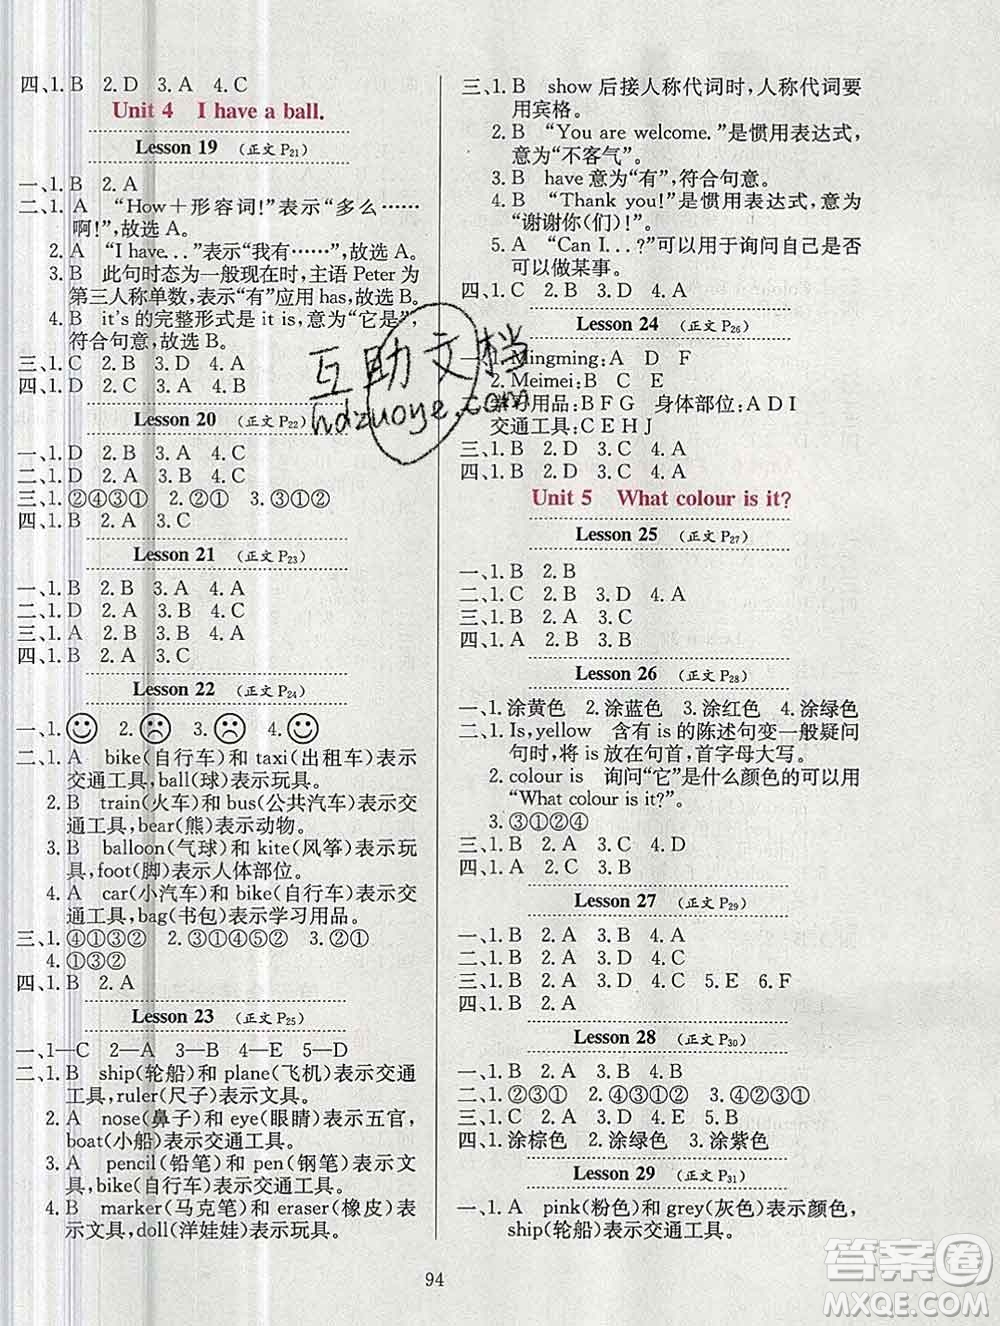 四、1. B  2. D  3. A  4. C
Unit 4  I have a ball.
Lesson 19 (正文 P21)
一、1. B  2. A
二、1. A  “How＋形容词!”表示“多么……
啊!”,故选 A。
2. A  “I have...”表示“我有……”,故选 A。
3. B  此句时态为一般现在时,主语 Peter 为
第三人称单数,表示“有”应用 has,故选 B。
4. B  it's 的完整形式是 it is,意为“它是”,
符合句意,故选 B。
三、1. C  2. B  3. D  4. A
四、1. D  2. C  3. A  4. B
Lesson 20 (正文 P22)
一、1. D  2. B  3. C  4. B
二、1. D  2. B  3. C  4. A
三、1. ②④③①  2. ②①③  3. ③①②
四、1. B  2. A  3. C
Lesson 21 (正文 P23)
一、1. B  2. B  3. A  4. A
二、1. D  2. A  3. C  4. A
三、1. A  2. B  3. A  4. A
四、1. B  2. A  3. C
Lesson 22 (正文 P24)
一、1.  2.  3.  4.
二、1. A  bike(自行车)和 taxi(出租车)表示
交通工具,ball(球)表示玩具。
2. B  train(火车)和 bus(公共汽车)表示交
通工具,bear(熊)表示动物。
3. B  balloon(气球)和 kite(风筝)表示玩
具,foot(脚)表示人体部位。
4. A  car(小汽车)和 bike(自行车)表示交
通工具,bag(书包)表示学习用品。
三、1. ④①③②  2. ③①④⑤②  3. ③①②
4. ④①③②
四、1. B  2. A
Lesson 23 (正文 P25)
一、1—C  2—A  3—B  4—E  5—D
二、1. B  ship(轮船)和 plane(飞机)表示交通
工具,ruler(尺子)表示文具。
2. A  nose(鼻子)和 eye(眼睛)表示五官,
boat(小船)表示交通工具。
3. A  pencil(铅笔)和 pen(钢笔)表示文
具,bike(自行车)表示交通工具。
4. B  marker(马克笔)和 eraser(橡皮)表
示文具,doll(洋娃娃)表示玩具。
三、1. B  show 后接人称代词时,人称代词要
用宾格。
2. B  “You are welcome.”是惯用表达式,
意为“不客气”。
3. B  have 意为“有”,符合句意。
4. B  “Thank you!”是惯用表达式,意为
“谢谢你(们)!”。
5. A  “Can I...?”可以用于询问自己是否
可以做某事。
四、1. C  2. B  3. D  4. A
Lesson 24 (正文 P26)
一、1. Mingming: A  D  F
2. Meimei: B  C  E
学习用品: B F G  身体部位: A D I
交通工具: C E H J
三、1. B  2. D  3. C  4. A
四、1. B  2. D  3. C  4. A
Unit 5  What colour is it?
Lesson 25 (正文 P27)
一、1. B  2. B
二、1. C  2. B  3. D  4. A
三、1. B  2. A  3. C
四、1. A  2. B  3. B
Lesson 26 (正文 P28)
一、1. 涂黄色  2. 涂蓝色  3. 涂红色  4. 涂绿色
二、1. Is, yellow  含有 is 的陈述句变一般疑问
句时,将 is 放在句首,首字母大写。
2. colour is  询问“它”是什么颜色的可以用
“What colour is it?”。
3. ③①②④
三、1. B  2. A  3. C  4. D
四、1. A  2. C  3. B
Lesson 27 (正文 P29)
一、1. B  2. A  3. B  4. A
二、1. B  2. D  3. C  4. A  5. E  6. F
四、1. B  2. A
Lesson 28 (正文 P30)
一、1. B  2. A  3. B  4. B
二、1. ②③①  2. ②③①  3. ③①④②
三、1. C  2. A  3. D  4. E  5. B
四、1. 涂棕色  2. 涂绿色  3. 涂紫色
Lesson 29 (正文 P31)
一、1. A  pink(粉色)和 grey(灰色)表示颜色,
ship(轮船)表示交通工具。
94
互助文档
hdzuoye.com
答案圈
MXQE.COM